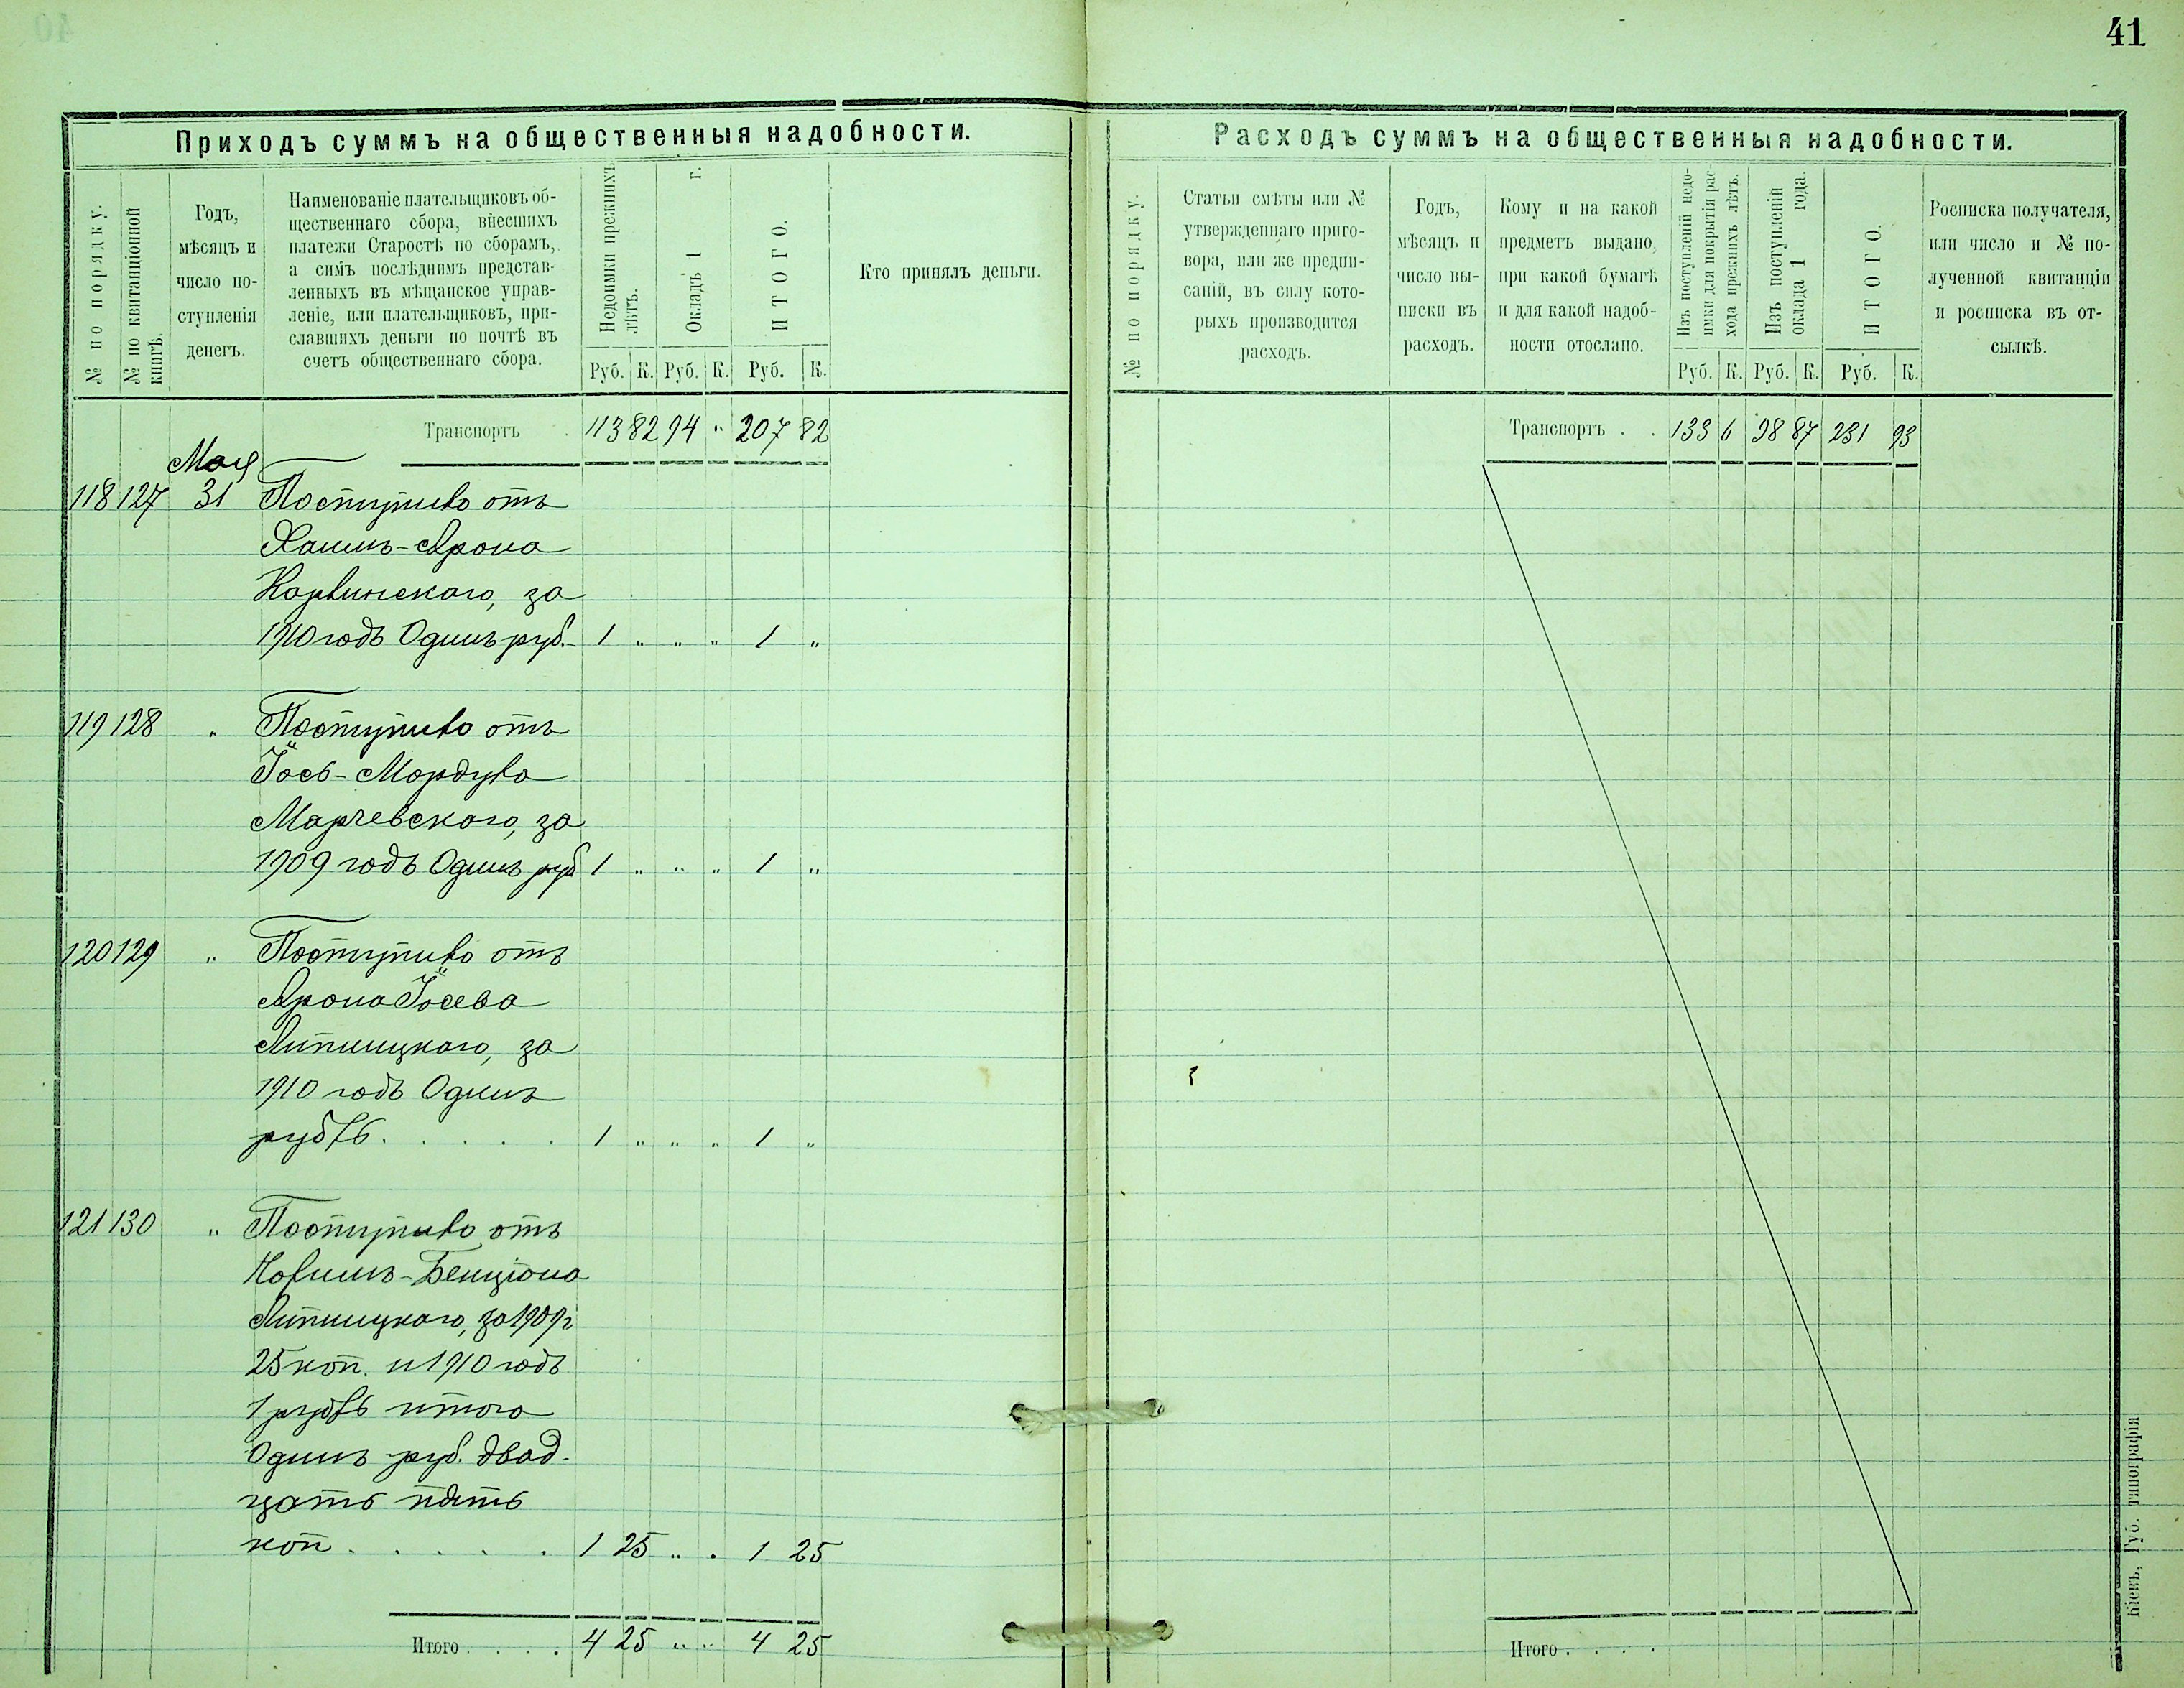 41
Приходъ суммъ на общественныя надобности.
№ по порядку.
№ по квитанціонной
книгѣ.
Годъ,
мѣсяцъ и
число по-
ступленія
денегъ.
Наименованіе плательщиковъ об-
щественнаго сбора, внесшихъ
платежи Старостѣ по сборамъ,
а симъ послѣднимъ представ-
ленныхъ въ мѣщанское управ-
леніе, или плательщиковъ, при-
славшихъ деньги по почтѣ въ
счетъ общественнаго сбора.
Недоимки прежнихъ
лѣтъ.
Окладъ 1 г.
ИТОГО.
Руб. К. Руб. К. Руб. К.
Кто принялъ деньги.
Транспортъ 113 82 94 " 207 82
Мая
118 127 31 Поступило отъ
Хаимъ-Арона
Карвинскаго, за
1910 годъ Одинъ руб. 1 " " " 1 "
119 128 " Поступило отъ
Іось-Мордука
Марчевскаго, за
1909 годъ Одинъ руб 1 " " " 1 "
120 129 " Поступило отъ
Арона Іосева
Липницкаго, за
1910 годъ Одинъ
рубль. . . . . 1 " " " 1 "
121 130 " Поступило отъ
Бенціона
Липницкаго, за 1909 г
25 коп. и 1910 годъ
1 рубль итого
Одинъ руб. двад-
цать пять
коп . . . . . 1 25 " . 1 25
Итого . . . . 4 25 " " 4 25
Расходъ суммъ на общественныя надобности.
№ по порядку.
Статьи смѣты или №
утвержденнаго приго-
вора, или же предпи-
саній, въ силу кото-
рыхъ производится
расходъ.
Годъ,
мѣсяцъ и
число вы-
писки въ
расходъ.
Кому и на какой
предметъ выдано,
при какой бумагѣ
и для какой надоб-
ности отослано.
Изъ поступленій недо-
имки для покрытія рас
хода прежнихъ лѣтъ.
Изъ поступленій
оклада 1 года.
ИТОГО.
Руб. К. Руб. К. Руб. К.
Росписка получателя,
или число и № по-
лученной квитанціи
и росписка въ от-
сылкѣ.
Транспортъ . . 133 6 98 87 231 93
Итого . . . .
Кіевъ, Губ. типографія